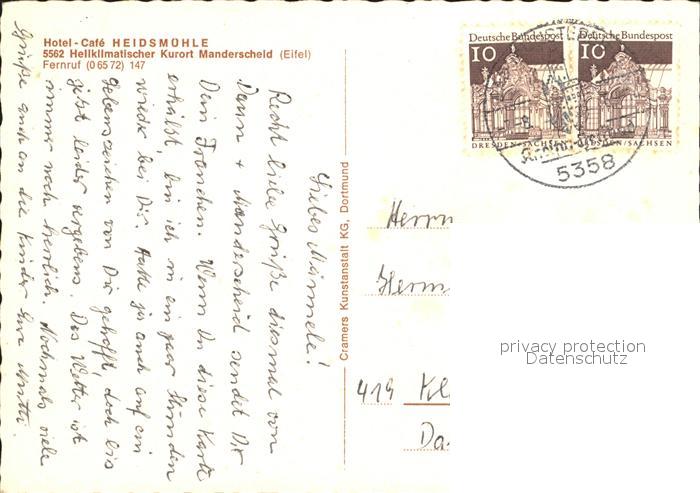 Hotel-Café HEIDSMÜHLE
5562 Heilklimatischer Kurort Manderscheid (Eifel)
Fernruf (0 65 72) 147
Liebes Männele!
Recht liebe Grüße diesmal von
Daun + Manderscheid sendet Dir
Dein Franchen. Wenn Du diese Karte
erhältst, bin ich in ein paar Stunden
wieder bei Dir. Hatte ja auch auf ein
Lebenszeichen von Dir gehofft, doch bis
jetzt leider vergebens. Das Wetter ist
immer noch herrlich. Nochmals viele
Grüße auch an die Kinder Eure Mutti.
Cramers Kunstanstalt KG, Dortmund
Deutsche Bundespost
10
DRESDEN/SACHSEN
Deutsche Bundespost
10
DRESDEN/SACHSEN
5358
Herrn
Herm
419 Kl
Da
privacy protection
Datenschutz